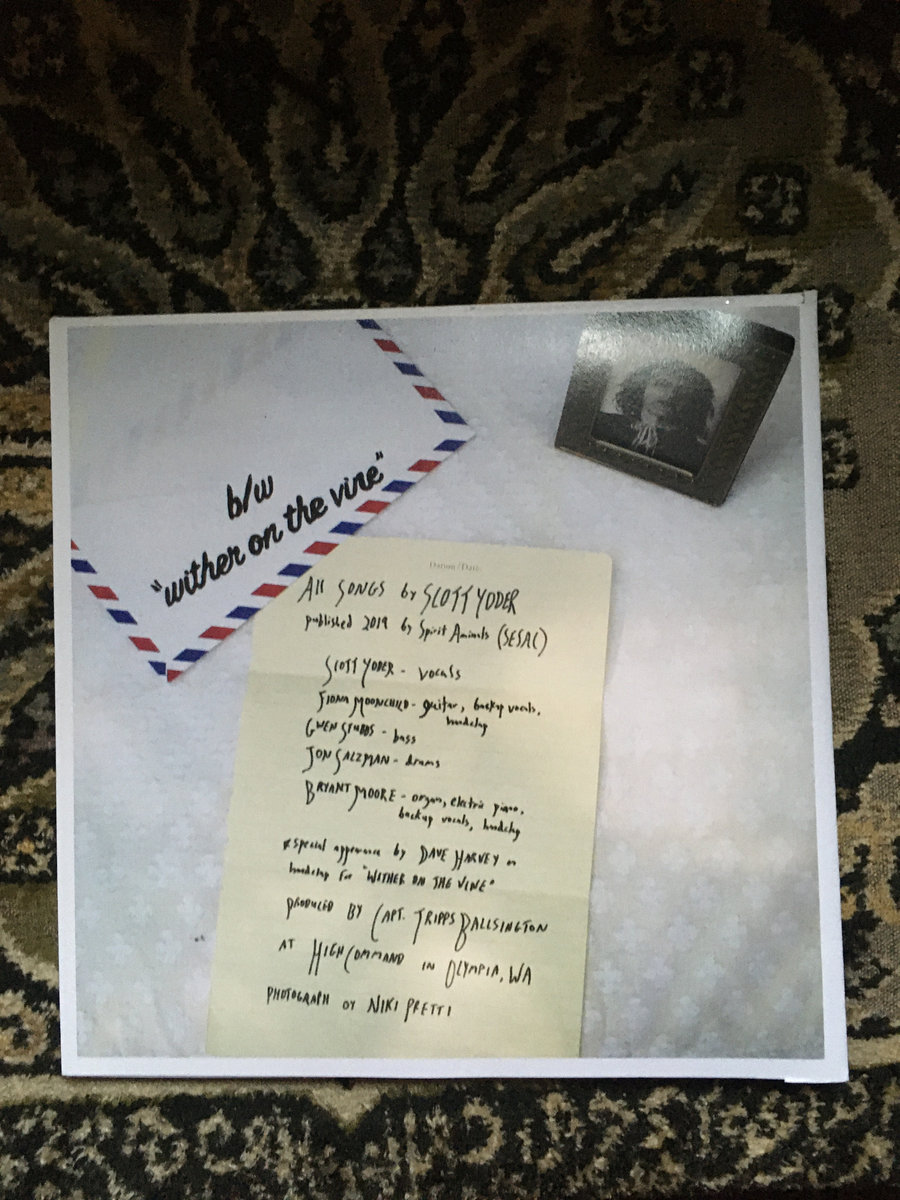 b/w
"wither on the vine"
Datum/Date
All SONGS by SCOTT YODER
published 2019 by Spirit Animals (SESAC)
SCOTT YODER - vocals
FIONA MOONCHILD - guitar, backup vocals,
handclap
GWEN STUBBS - bass
JON SALZMAN - drums
BRYANT MOORE - organ, electric piano,
backup vocals, handclap
*special appearance by DAVE HARVEY on
handclap for "WITHER ON THE VINE"
PRODUCED BY CAPT. TRIPPS BALLSINGTON
AT HIGH COMMAND IN OLYMPIA, WA
PHOTOGRAPH BY NIKI PRETTI